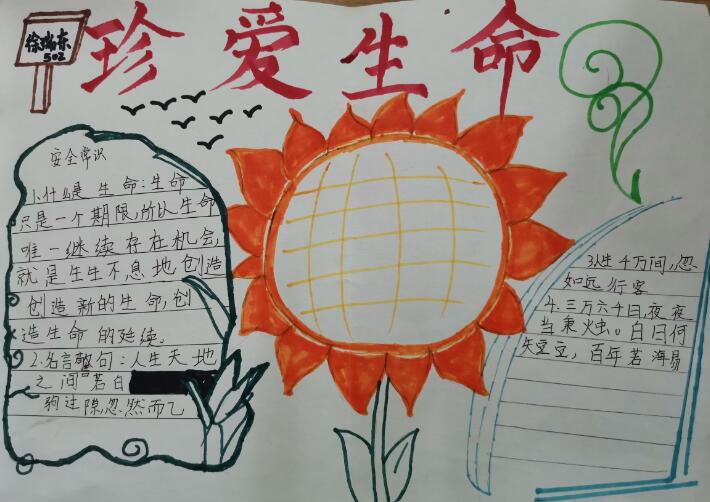 徐瑞东
502
珍爱生命
安全常识
1.什么是生命:生命
只是一个期限,所以生命
唯一继续存在机会,
就是生生不息地创造
创造新的生命,创
造生命的延续。
2.名言警句:人生天地
之间若白
驹过隙,忽然而已
3.人生4万间,忽
如远行客
4.三万六千日,夜夜
当秉烛。白日何
短短,百年若海易